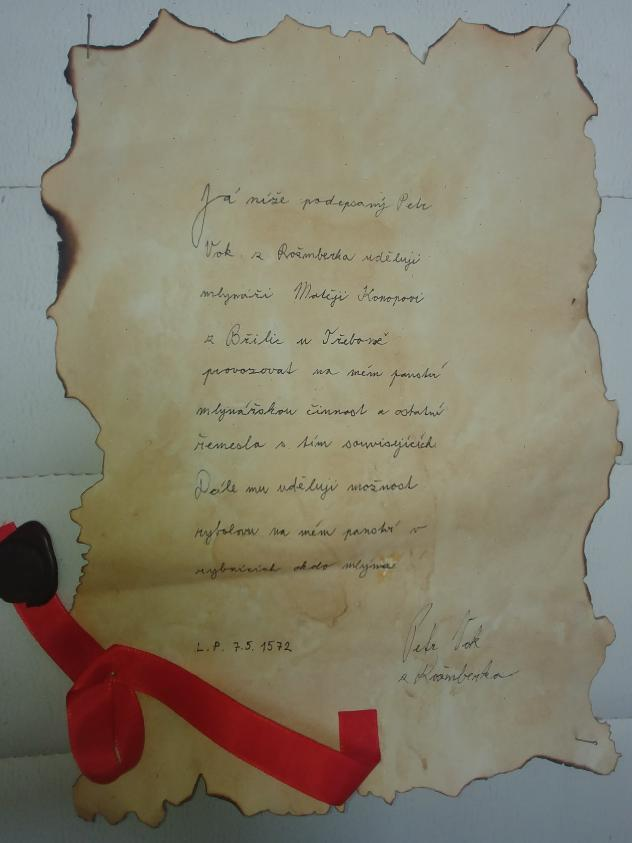 Já níže podepsaný Petr
Vok z Rožmberka uděluji
mlynáři Matěji Konopovi
z Břilic u Třeboně
provozovat na mém panství
mlynářskou činnost a ostatní
řemesla s tím souvisejících
Dále mu uděluji možnost
rybolovu na mém panství v
rybnících okolo mlýna
L.P. 7.5. 1572
Petr Vok
z Rožmberka